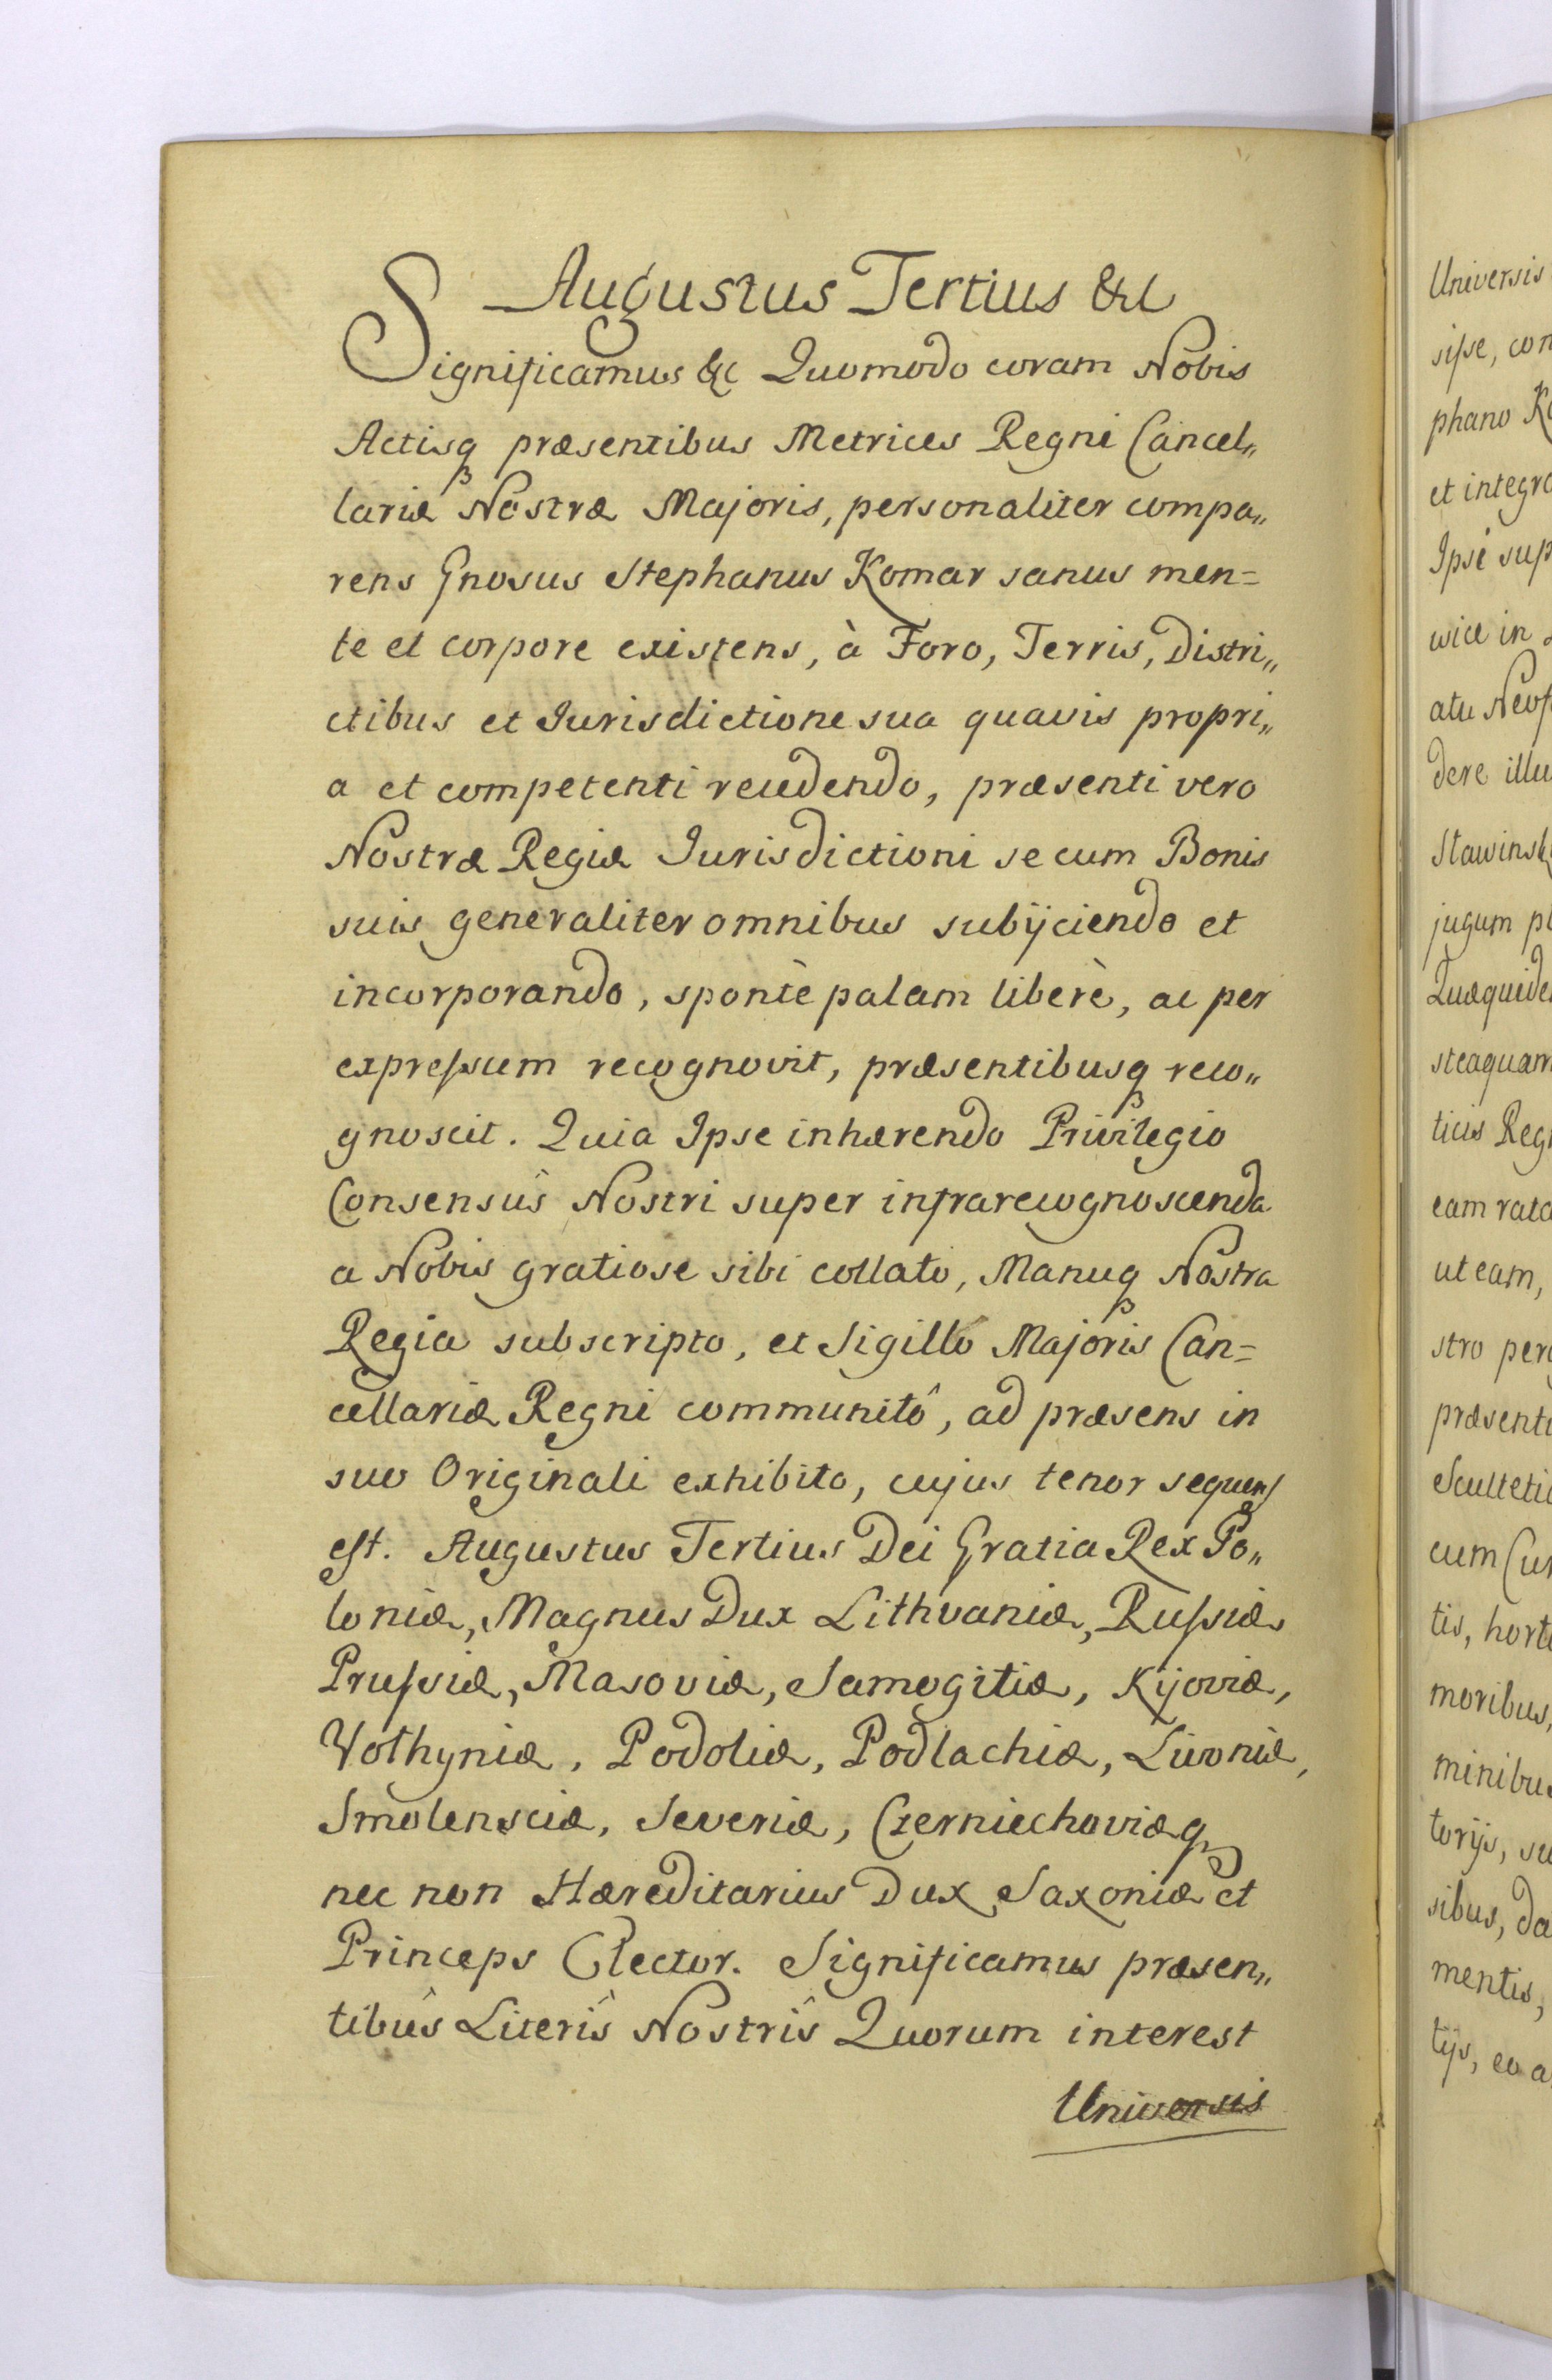 Augustus Tertius &c
Significamus &c Quomodo coram Nobis
Actisq præsentibus Metrices Regni Cancel„
lariæ Nostræ Majoris, personaliter compa„
rens Gnosus Stephanus Komar sanus men=
te et corpore existens, à Foro, Terris, Distri„
ctibus et Jurisdictione sua quavis propri„
a et competenti recedendo, præsenti vero
Nostræ Regiæ Jurisdictioni se cum Bonis
suis generaliter omnibus subijciendo et
incorporando, spontè palam liberè, ac per
expressum recognovit, præsentibusq reco„
gnoscit. Quia Ipse inhærendo Privilegio
Consensûs Nostri super infrarecognoscenda
a Nobis gratiose sibi collato, Manuq Nostra
Regia subscripto, et Sigillo Majoris Can=
cellariæ Regni communitô, ad præsens in
suo Originali exhibito, cujus tenor sequens
est. Augustus Tertius Dei Gratia Rex Po„
loniæ, Magnus Dux Lithvaniæ, Russiæ
Prussiæ, Masoviæ, Samogitiæ, Kijoviæ,
Volhyniæ, Podoliæ, Podlachiæ, Livoniæ,
Smolensciæ, Severiæ, Czerniechoviæq
nec non Hæreditarius Dux Saxoniæ et
Princeps Elector. Significamus præsen„
tibûs Literîs Nostrîs Quorum interest
Universis
Universis
sisse, con
phano Ko
et integra
Ipse sup
wice in
atu Neof
dere illu
Stawinsk
jugum pl
Quæquide
steaquam
ticis Reg
eam rata
ut eam,
stro per
præsenti
Scultetia
cum Cur
tis, horti
moribus,
minibus
torijs, su
sibus, da
mentis,
tijs, eo a